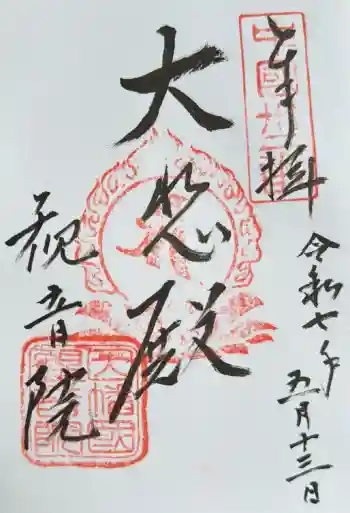 奉拝
令和七年
五月十三日
大悲殿
観音院